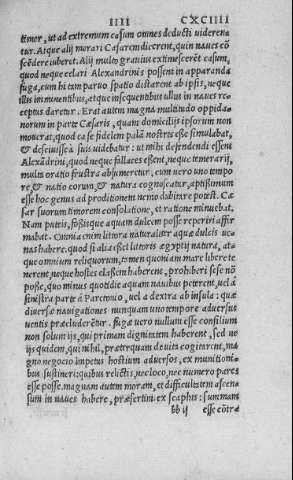 IIII CXCIIII
timor, ut ad extremum casum omnes deducti uideren=
tur. Atque alij morari Cæsarem dicerent, quin naues cõ
scẽdere iuberet. Alij multo grauius extimescerẽt casum,
quod neque celari Alexandrinis possent in apparanda
fuga, cum hi tam paruo spatio distarent ab ipsis, neque
illis imminentibus, atque insequentibus ullus in naues re=
ceptus daretur. Erat autem magna multitudo oppida=
norum in parte Cæsaris, quam domicilijs ipsorum non
mouerat, quod ea se fidelem palã nostris eẽ simulabat,
& desciuisse à suis uidebatur: ut mihi defendendi essent
Alexãdrini, quod neque fallaces eẽent, neque temerarij,
multa oratio frustra absumeretur, cum uero uno tempo
re, & natio eorum, & natura cognoscatur, aptissimum
esse hoc genus ad proditionem nemo dubitare potest. Cæ
sar suorum timorem consolatione, et ratione minuebat.
Nam puteis, fossisque aquam dulcem posse reperiri affir
mabat. Omnia enim litora naturaliter aquæ dulcis ue=
nas habere. quod si alia eẽet litoris ægyptij natura, at=
que omnium reliquorum, tamen quoniam mare libere te
nerent, neque hostes classem haberent, prohiberi sese nõ
posse, quo minus quotidie aquam nauibus peterent, uel à
sinistra parte à Paretonio, uel à dextra ab insula: quæ
diuersæ nauigationes nunquam uno tempore aduersus
uentis præcluderẽtur. fugæ uero nullum esse consilium
non solum ijs, qui primam dignitatem haberent, sed ne
ijs quidem, qui nihil, præterquam de uita cogitarent, ma
gno negocio impetus hostium aduersos, ex munitioni=
bus sustineri: quibus relictis, nec loco, nec numero pares
esse posse. magnam autem moram, et difficultatem ascen=
sum in naues habere, præsertim ex scaphis: summam
bb ij esse cõtrà